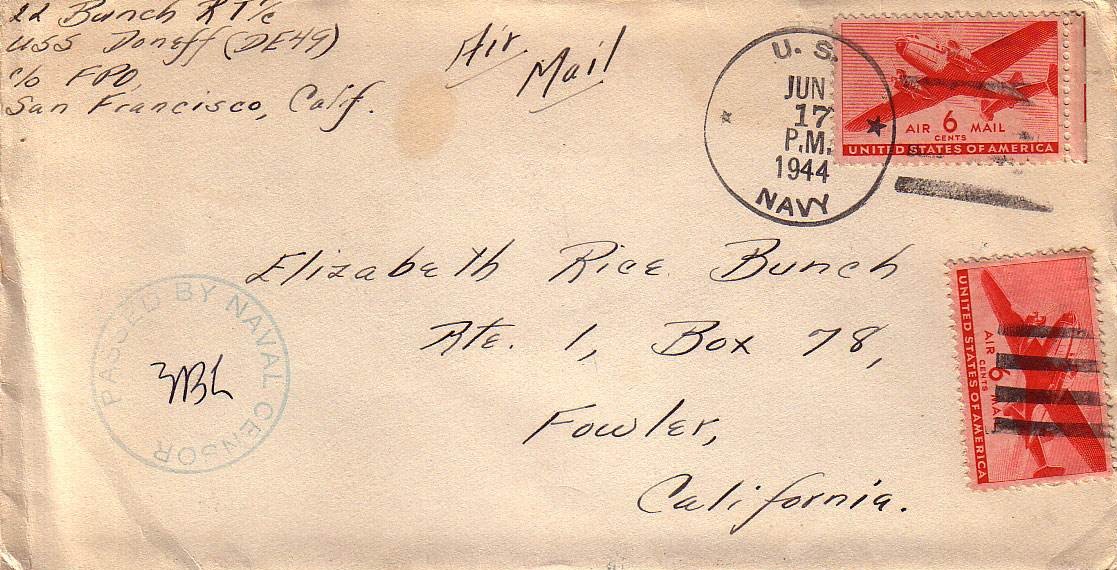 Bunch RT1/c
USS Doneff (DE49)
c/o FPO
San Francisco, Calif.
Air Mail
U. S.
JUN
17
P.M.
1944
NAVY
AIR 6 MAIL
CENTS
UNITED STATES OF AMERICA
Elizabeth Rice Bunch
Rte. 1, Box 78,
Fowler,
California.
PASSED BY NAVAL CENSOR
AIR 6 MAIL
CENTS
UNITED STATES OF AMERICA